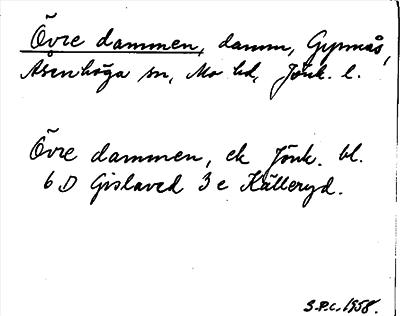 Övre dammen, damm, Gypnås,
Åsenhöga sn, Mo hd, Jönk. l.
Övre dammen, ek Jönk. bl.
6 D Gislaved 3 e Källeryd.
S.P.C. 1958.